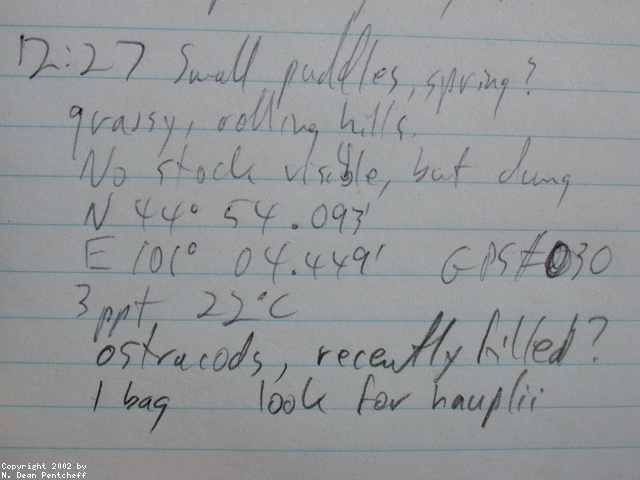 12:27 Small puddles, spring?
grassy, rolling hills.
No stock visible, but dung
N 44° 54.093'
E 101° 04.449' GPS#030
3ppt 22°C
ostracods, recently killed?
1 bag look for nauplii
Copyright 2002 by
N. Dean Pentcheff